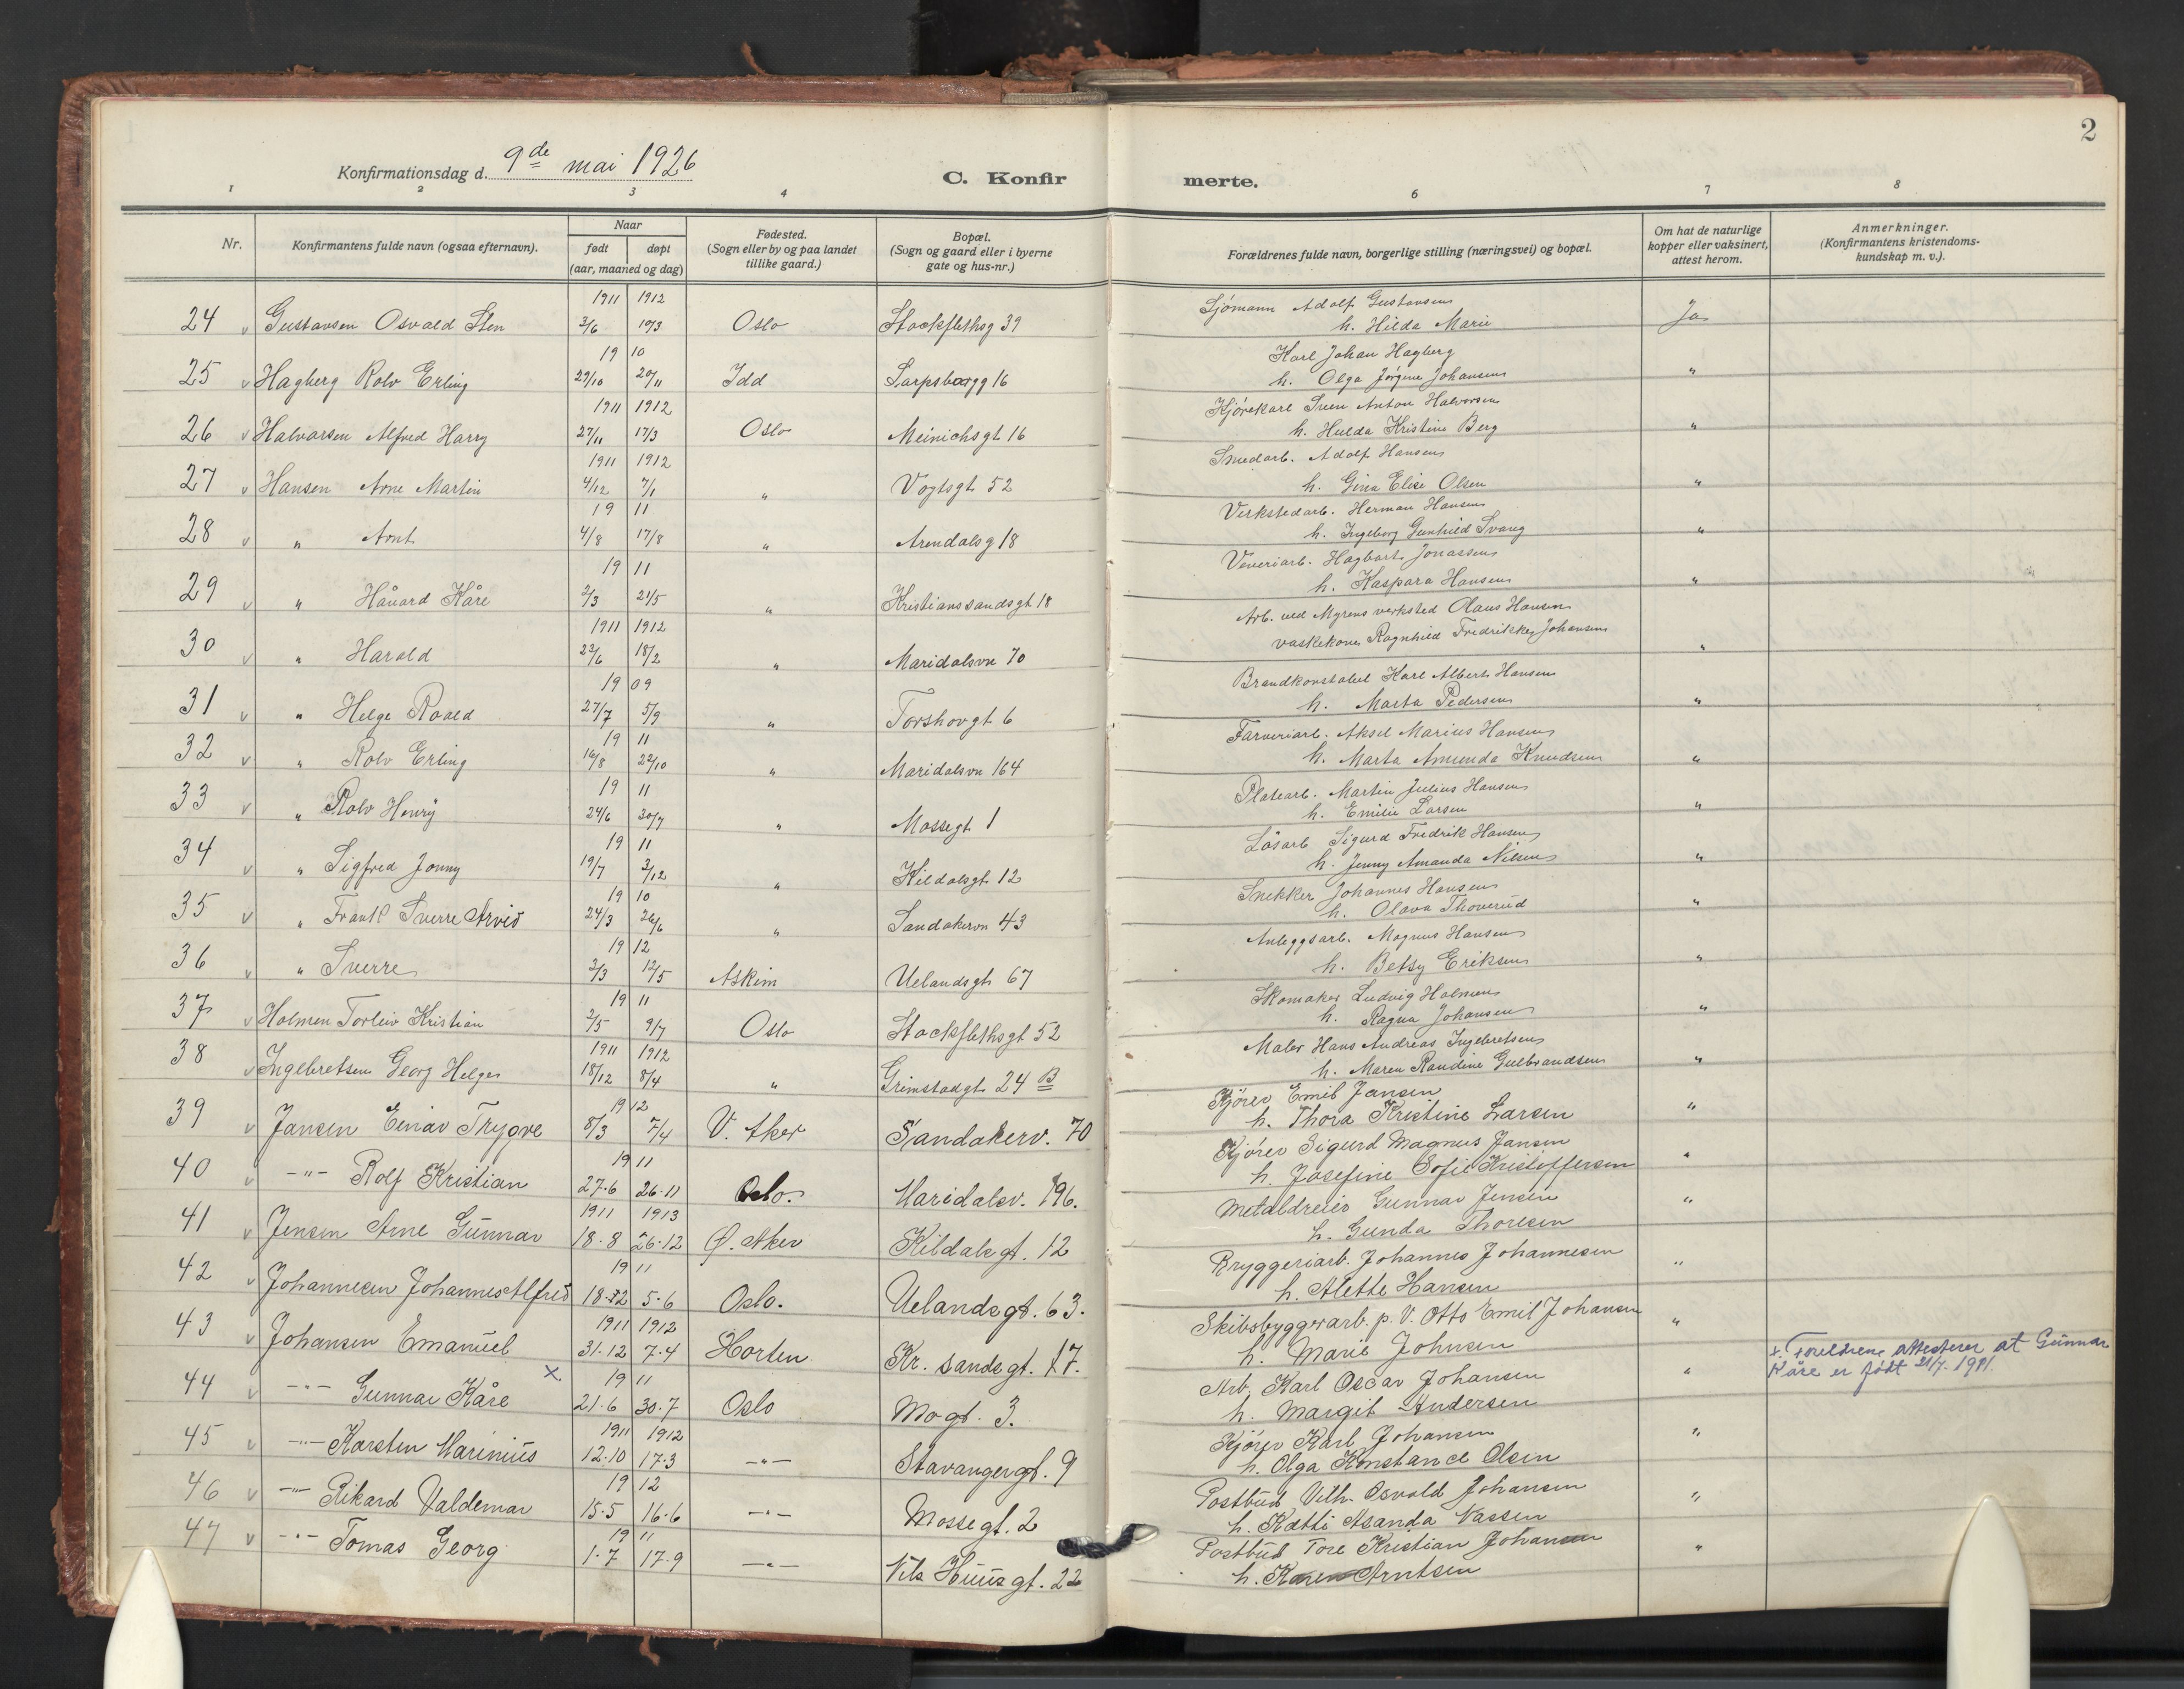 2
Konfirmationsdag d. 9de mai 1926
C. Konfirmerte.
1 2 3 4 6 7 8
Nr.
Konfirmantens fulde navn (ogsaa efternavn).
Naar
født døpt
(aar, maaned og dag)
Fødested.
(Sogn eller by og paa landet
tillike gaard.)
Bopæl.
(Sogn og gaard eller i byerne
gate og hus-nr.)
Forældrenes fulde navn, borgerlige stilling (næringsvei) og bopæl.
Om hat de naturlige
kopper eller vaksinert,
attest herom.
Anmerkninger.
(Konfirmantens kristendoms-
kundskap m. v.).
1911 1912 Sjömann Adolf Gustavsen
24 v Gustavsen Osvald Sten 3/6 10/3 Oslo Stockflethsg 39 h. Hilda Marie Ja
19 10 Karl Johan Hagberg
25 v Hagberg Rolv Erling 29/10 20/11 Idd Sarpsborgg 16 h. Olga Jörgine Johansen "
1911 1912 Kjörekarl Sven Anton Halvorsen
26 v Halvorsen Alfred Harry 27/11 17/3 Oslo Meinichsgt 16 h. Hulda Kristine Berg "
1911 1912 Smedarb. Adolf Hansen
27 v Hansen Arne Martin 4/12 7/1 " Vogtsgt 52 h. Gina Elise Olsen "
19 11 Verkstedarb. Herman Hansen
28 v " Arnt 4/8 17/8 " Arendalsg 18 h. Ingeborg Gunhild Svang "
19 11 Veveriarb. Hagbart Jonassen
29 v " Håvard Kåre 2/3 21/5 " Kristianssandsgt 18 h. Kaspara Hansen "
1911 1912 Arb. ved Myrens verksted Olaus Hansen
30 v " Harald 23/6 18/2 " Maridalsvn 70 vaskekone Ragnhild Fredrikke Johansen "
19 09 Brandkonstabel Karl Albert Hansen
31 v " Helge Roald 27/7 5/9 " Torshovgt 6 h. Marta Pedersen "
19 11 Farveriarb. Aksel Marius Hansen
32 v " Rolv Erling 16/8 22/10 " Maridalsvn 164 h. Marta Amunda Knudsen "
19 11 Platearb. Martin Julius Hansen
33 v " Rolv Henry 24/6 30/7 " Mossegt 1 h. Emilie Larsen "
19 11 Låsarb Sigurd Fredrik Hansen
34 v " Sigfred Jonny 19/7 3/12 " Kildalsgt 12 h. Jenny Amanda Nilsen "
19 10 Snekker Johannes Hansen
35 v " Frank Sverre Arvid 24/3 26/6 " Sandakervn 43 h. Olava Thoverud "
19 12 Anleggsarb. Magnus Hansen
36 v " Sverre 2/3 12/5 Askim Uelandsgt 67 h. Betsy Eriksen "
19 11 Skomaker Ludvig Holmen
37 v Holmen Torleiv Kristian 2/5 9/7 Oslo Stockflethsgt 52 h. Ragna Johansen "
1911 1912 Maler Hans Andreas Ingebretsen
38 v Ingebretsen Georg Helge 18/12 8/4 " Grimstadgt 24 B h. Maren Randine Gulbrandsen "
19 12 Kjörer Emil Jansen
39 v Jansen Einar Trygve 8/3 7/4 V. Aker Sandakerv. 70 h. Thora Kristine Larsen "
19 11 Kjörer Sigurd Magnus Jansen
40 v -"- Rolf Kristian 27.6 26.11 Oslo. Maridalsv. 196. h. Josefine Sofie Kristoffersen "
1911 1913 Metaldreier Gunnar Jensen
41 v Jensen Arne Gunnar 18.8 26.12 Ø. Aker Kildalsgt. 12 h. Gunda Thoresen "
19 11 Bryggeriarb. Johannes Johannesen
42 v Johannesen Johannes Alfred 5.6 Oslo. Uelandsgt. 63. h. Alette Hansen "
1911 1912 Skibsbyggerarb. p. V. Otto Emil Johansen
43 v Johansen Emanuel 31.12 7.4 Horten Kr. sandsgt. 17. h. Marie Johnsen "
19 11 Arb. Karl Oscar Johansen
44 v -"- Gunnar Kåre x 21.6 30.7 Oslo Mogt. 3. h. Margit Andersen " x. Foreldrene attesterer at Gunnar
Kåre er født 21/7 1911.
1911 1912 Kjörer Karl Johansen
45 v -"- Karsten Marinius 12.10 17.3 -"- Stavangergt. 9 h. Olga Konstance Olsen "
19 12 Postbud Vilh. Osvald Johansen
46 v -"- Rikard Valdemar 15.5 16.6 -"- Mossegt. 2 h. Kathi Asanda Nassen "
19 11 Postbud Tore Kristian Johansen
47 v -"- Tomas Georg 1.7 17.9 -"- Nils Huusgt. 22 h. Karen Arntsen "